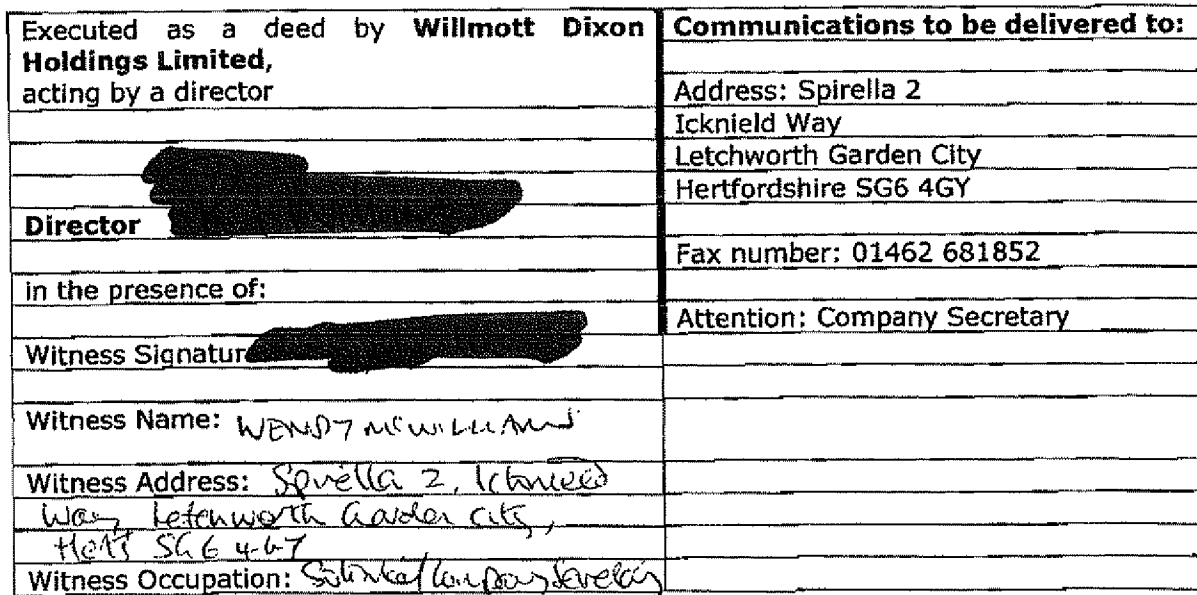 Executed as a deed by Willmott Dixon
Holdings Limited,
acting by a director
Director
in the presence of:
Witness Signatur
Witness Name: WENDY MCWILLIAMS
Witness Address: Spirella 2, Icknield
Way, Letchworth Garden City,
Herts SG6 4GY
Witness Occupation: Solicitor/Company Secretary
Communications to be delivered to:
Address: Spirella 2
Icknield Way
Letchworth Garden City
Hertfordshire SG6 4GY
Fax number: 01462 681852
Attention: Company Secretary